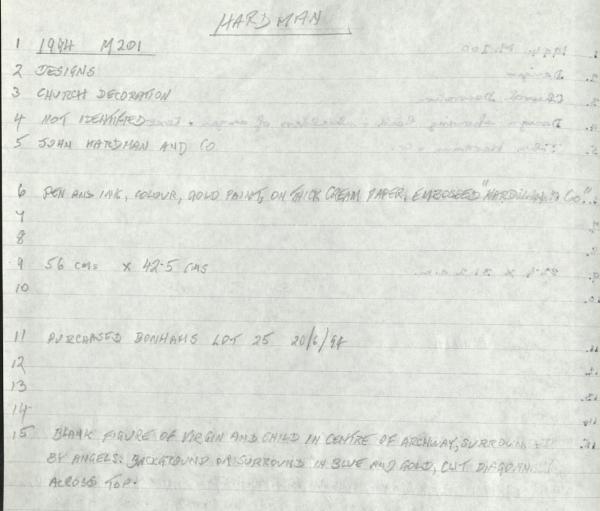 HARDMAN
1 1994 M201
2 DESIGNS
3 CHURCH DECORATION
4 NOT IDENTIFIED
5 JOHN HARDMAN AND CO
6 PEN AND INK, COLOUR, GOLD PAINT, ON THICK CREAM PAPER, EMBOSSED "HARDMAN & Co".
7
8
9 56 cms x 42.5 cms
10
11 PURCHASED BONHAMS LOT 25 20/6/94
12
13
14
15 BLANK FIGURE OF VIRGIN AND CHILD IN CENTRE OF ARCHWAY, SURROUND
BY ANGELS. BACKGROUND OR SURROUND IN BLUE AND GOLD, CUT DIAGONALLY
ACROSS TOP.